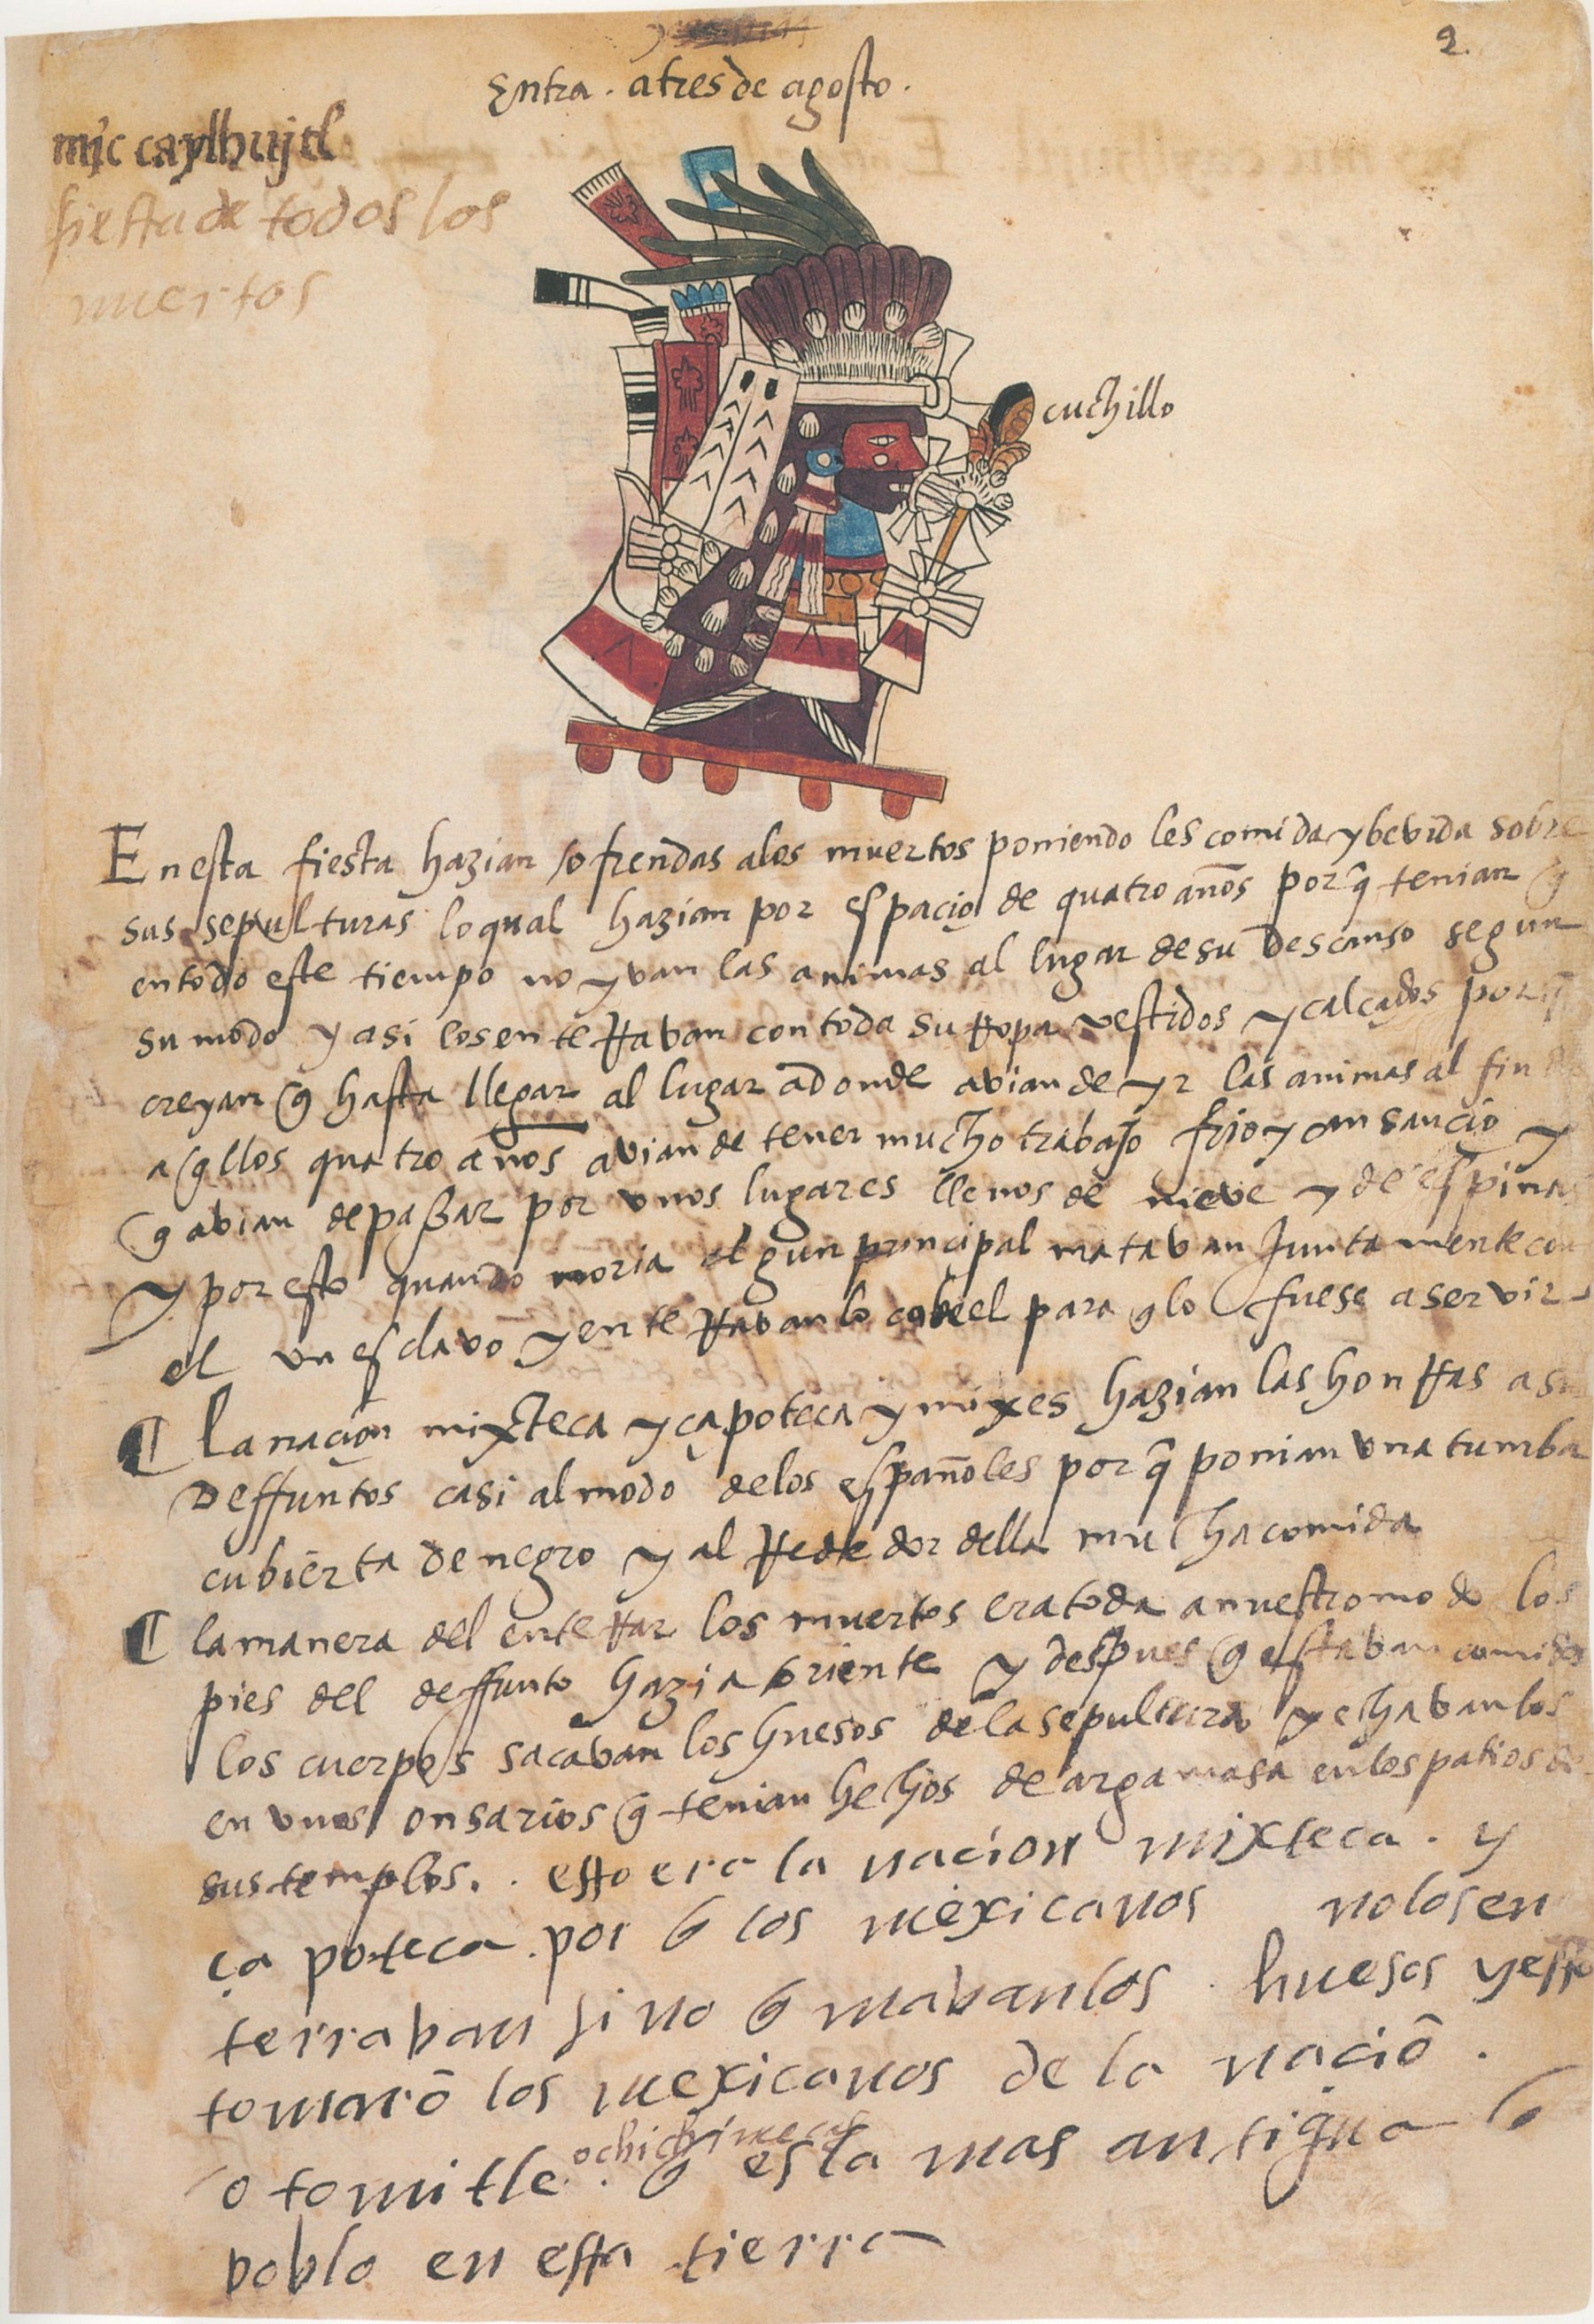 2.
Entra . a tres de agosto .
mjc caylhujtl
fiesta de todos los
muertos
cuchillo
En esta fiesta hazian ofrendas a los muertos poniendo les comida y bevida sobre
sus sepulturas lo qual hazian por espacio de quatro años porq̃ tenian q̃
en todo este tiempo no yvan las animas al lugar de su descanso segun
su modo y asi los enterravan con toda su ropa vestidos y calçados porq̃
creyan q̃ hasta llegar al lugar adonde avian de yr las animas al fin de
aq̃llos quatro años avian de tener mucho trabajo frio y cansancio y
q̃ avian de passar por unos lugares llenos de nieve y de espinas
y por esto quando moria algun principal matavan juntamente con
el un esclavo y enterravanlo con el para q̃ lo fuese a servir
¶ la nacion mixteca y çapoteca y mixes hazian las honrras a sus
deffuntos casi al modo de los españoles porq̃ ponian una tumba
cubierta de negro y al rededor della mucha comida
¶ la manera del enterrar los muertos era toda a nuestro modo los
pies del deffunto hazia oriente y despues q̃ estavan comidos
los cuerpos sacavan los huesos de la sepultura y echavanlos
en unos onsarios q̃ tenian hechos de argamasa en los patios de
sus templos. . esto era la nacion mixteca . y
ça poteca . por q̃ los mexicanos no los en
terraban sino q̃ mavanlos . huesos y esto
tomarō los mexicanos de la naciō .
otomitle . o chichimecas q̃ es la mas antigua q̃
poblo en esta tierra